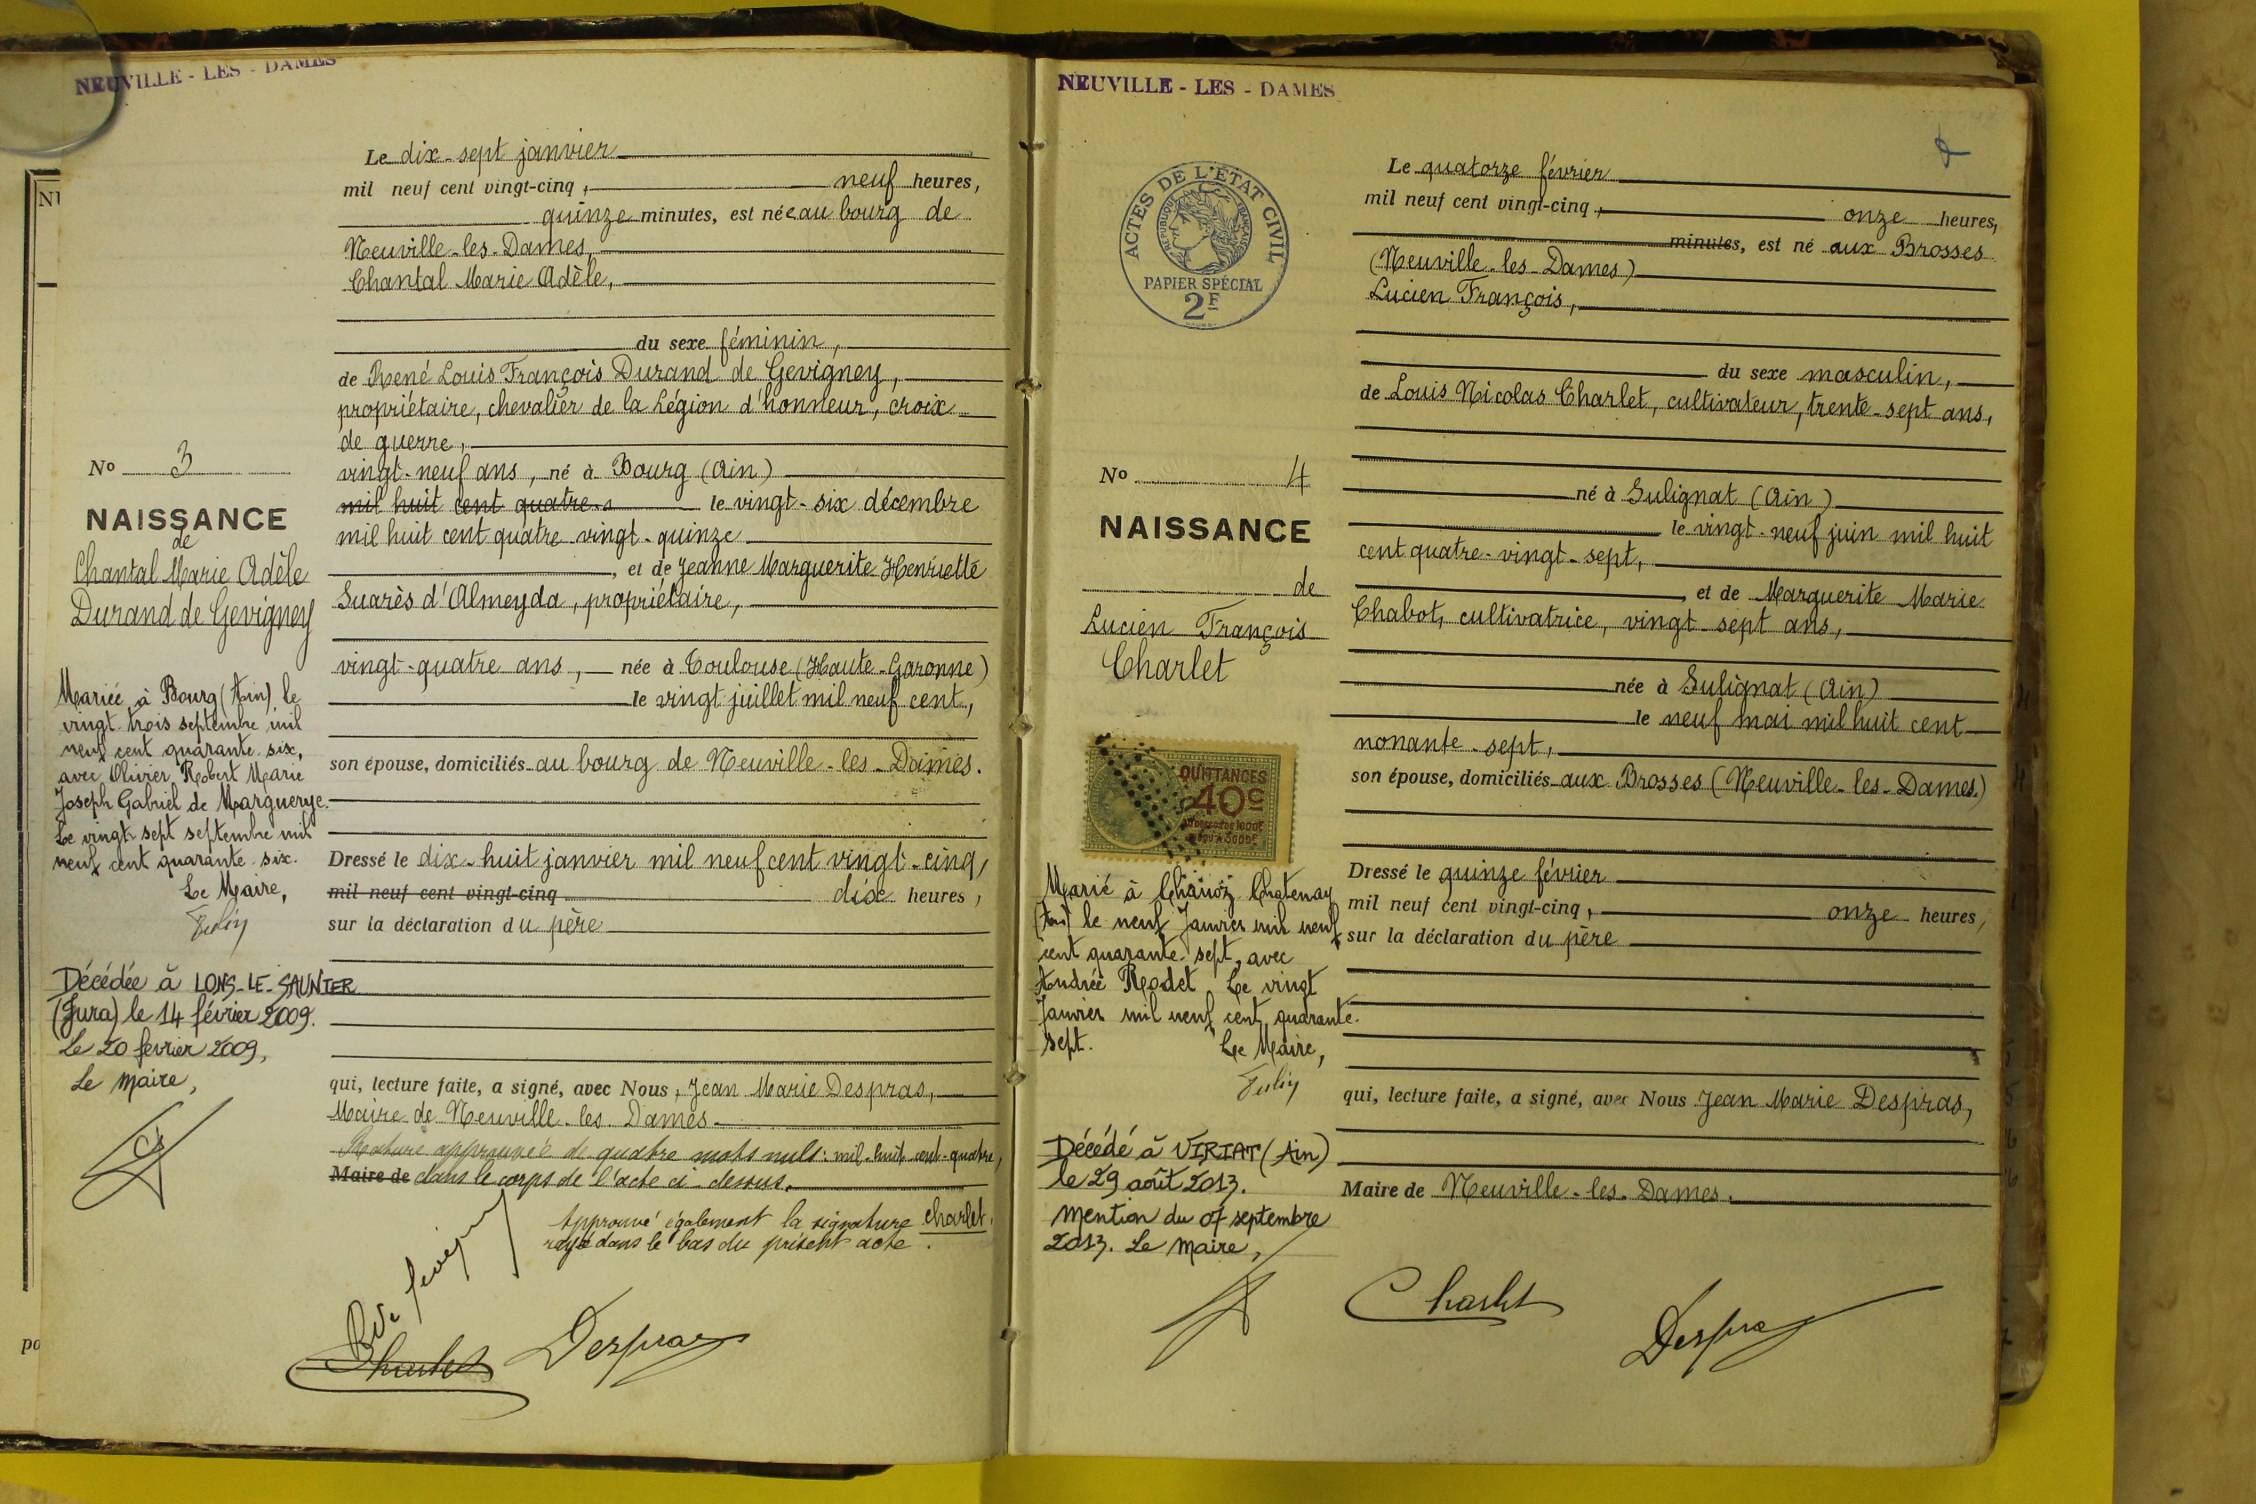 NEUVILLE - LES - DAMES
Le dix-sept janvier
mil neuf cent vingt-cinq, neuf heures,
quinze minutes, est née au bourg de
Neuville-les-Dames,
Chantal Marie Adèle,
du sexe féminin,
de René Louis François Durand de Gevigney,
propriétaire, chevalier de la Légion d'honneur, croix
de guerre,
vingt-neuf ans, né à Bourg (Ain)
mil huit cent quatre le vingt-six décembre
mil huit cent quatre-vingt-quinze
, et de Jeanne Marguerite Henriette
Suarès d'Almeyda, propriétaire,
vingt-quatre ans, née à Toulouse (Haute-Garonne)
le vingt juillet mil neuf cent,
son épouse, domiciliés au bourg de Neuville-les-Dames.
Dressé le dix-huit janvier mil neuf cent vingt-cinq,
mil neuf cent vingt-cinq dix heures,
sur la déclaration du père
qui, lecture faite, a signé, avec Nous, Jean Marie Despras,
Maire de Neuville-les-Dames
Rature approuvée de quatre mots nuls: mil-huit-cent-quatre,
Maire de dans le corps de l'acte ci-dessus.
Approuvé également la signature charlet
rayé dans le bas du présent acte.
Gevigney
Charlet Despras
No 3
NAISSANCE
de
Chantal Marie Adèle
Durand de Gevigney
Mariée à Bourg (Ain) le
vingt-trois septembre mil
neuf cent quarante-six,
avec Olivier Robert Marie
Joseph Gabriel de Marguerye.
Le vingt-sept septembre mil
neuf cent quarante-six.
Le Maire,
Décédée à LONS-LE-SAUNIER
(Jura) le 14 février 2009.
Le 20 février 2009,
Le Maire,
NEUVILLE - LES - DAMES
ACTES DE L'ÉTAT CIVIL
RÉPUBLIQUE FRANÇAISE
PAPIER SPÉCIAL
2F
Le quatorze février
mil neuf cent vingt-cinq, onze heures,
minutes, est né aux Brosses
(Neuville-les-Dames)
Lucien François,
du sexe masculin,
de Louis Nicolas Charlet, cultivateur, trente-sept ans,
né à Sulignat (Ain)
le vingt-neuf juin mil huit
cent quatre-vingt-sept,
, et de Marguerite Marie
Chabot, cultivatrice, vingt-sept ans,
née à Sulignat (Ain)
le neuf mai mil huit cent
nonante-sept,
son épouse, domiciliés aux Brosses (Neuville-les-Dames.)
Dressé le quinze février
mil neuf cent vingt-cinq, onze heures,
sur la déclaration du père
qui, lecture faite, a signé, avec Nous Jean Marie Despras,
Maire de Neuville-les-Dames.
Charlet
Despras
No 4
NAISSANCE
de
Lucien François
Charlet
QUITTANCES
40c
Marié à Chanoz Chatenay
(Ain) le neuf Janvier mil neuf
cent quarante-sept, avec
Andrée Rodet Le vingt
Janvier mil neuf cent quarante-
sept. Le Maire,
Décédé à VIRIAT (Ain)
le 29 août 2013.
Mention du 07 septembre
2013. Le Maire,